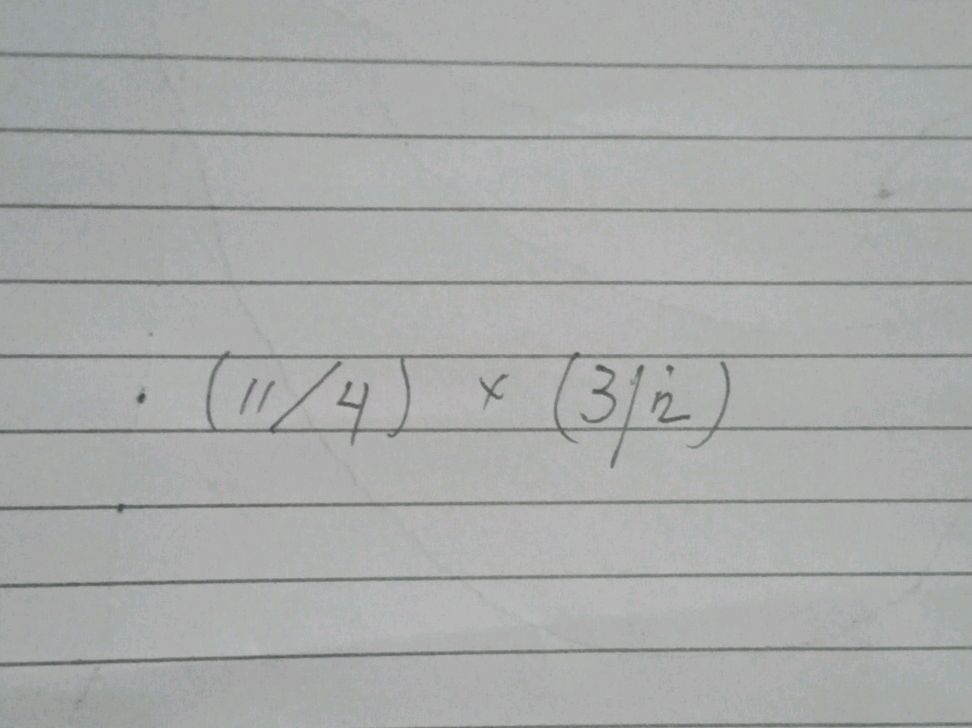 (11/4) × (3/12)